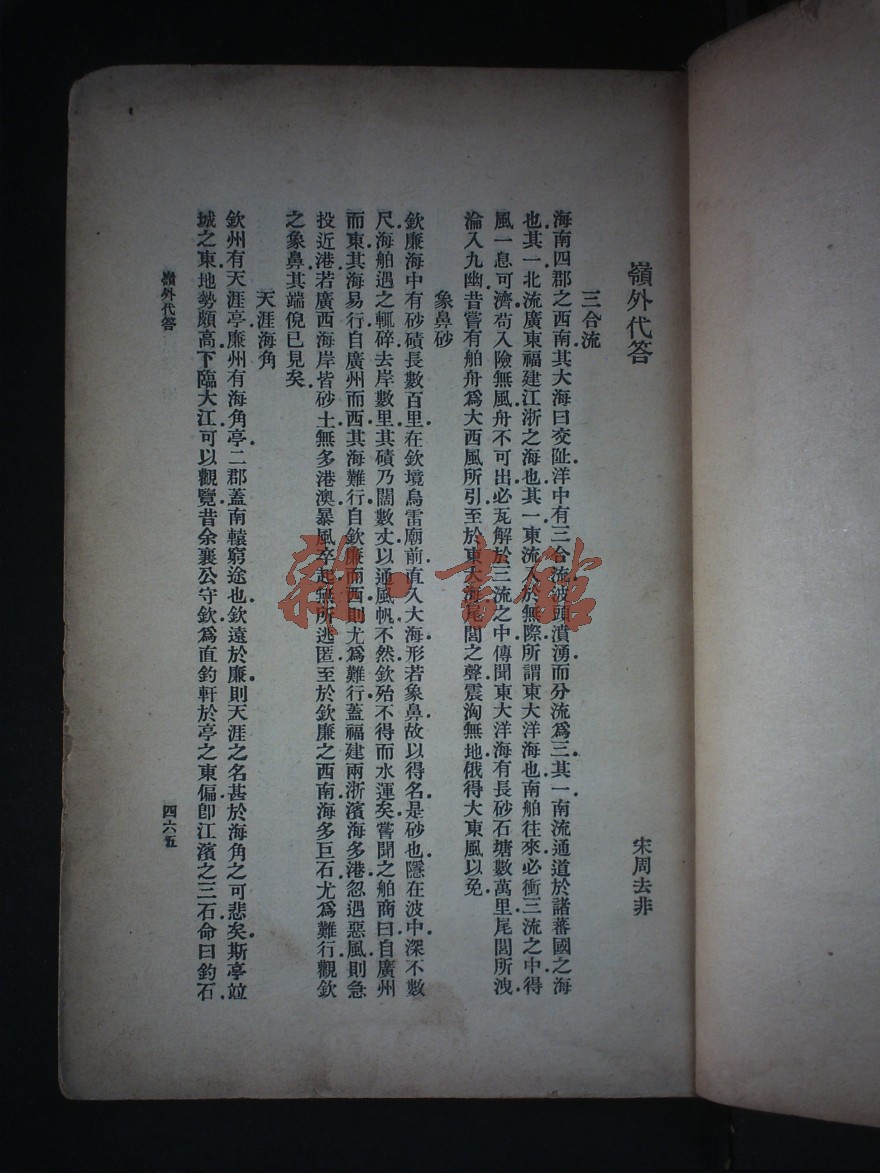 嶺外代答
宋周去非
三合流
海南四郡之西南其大海曰交阯洋中有三合流波頭濆湧而分流爲三其一南流通道於諸蕃國之海
也其一北流廣東福建江浙之海也其一東流入於無際所謂東大洋海也南舶往來必衝三流之中得
風一息可濟苟入險無風舟不可出必瓦解於三流之中傳聞東大洋海有長砂石塘數萬里尾閭所洩
淪入九幽昔嘗有舶舟爲大西風所引至於東大海尾閭之聲震洶無地俄得大東風以免
象鼻砂
欽廉海中有砂磧長數百里在欽境烏雷廟前直入大海形若象鼻故以得名是砂也隱在波中深不數
尺海舶遇之輒碎去岸數里其磧乃闊數丈以通風帆不然欽殆不得而水運矣嘗聞之舶商曰自廣州
而東其海易行自廣州而西其海難行自欽廉而西則尤爲難行蓋福建兩浙濱海多港忽遇惡風則急
投近港若廣西海岸皆砂土無多港澳暴風卒起無所逃匿至於欽廉之西南海多巨石尤爲難行觀欽
之象鼻其端倪已見矣
天涯海角
欽州有天涯亭廉州有海角亭二郡蓋南轅窮途也欽遠於廉則天涯之名甚於海角之可悲矣斯亭竝
城之東地勢頗高下臨大江可以觀覽昔余襄公守欽爲直釣軒於亭之東偏卽江濱之三石命曰釣石
嶺外代答
四六五
雜·書館